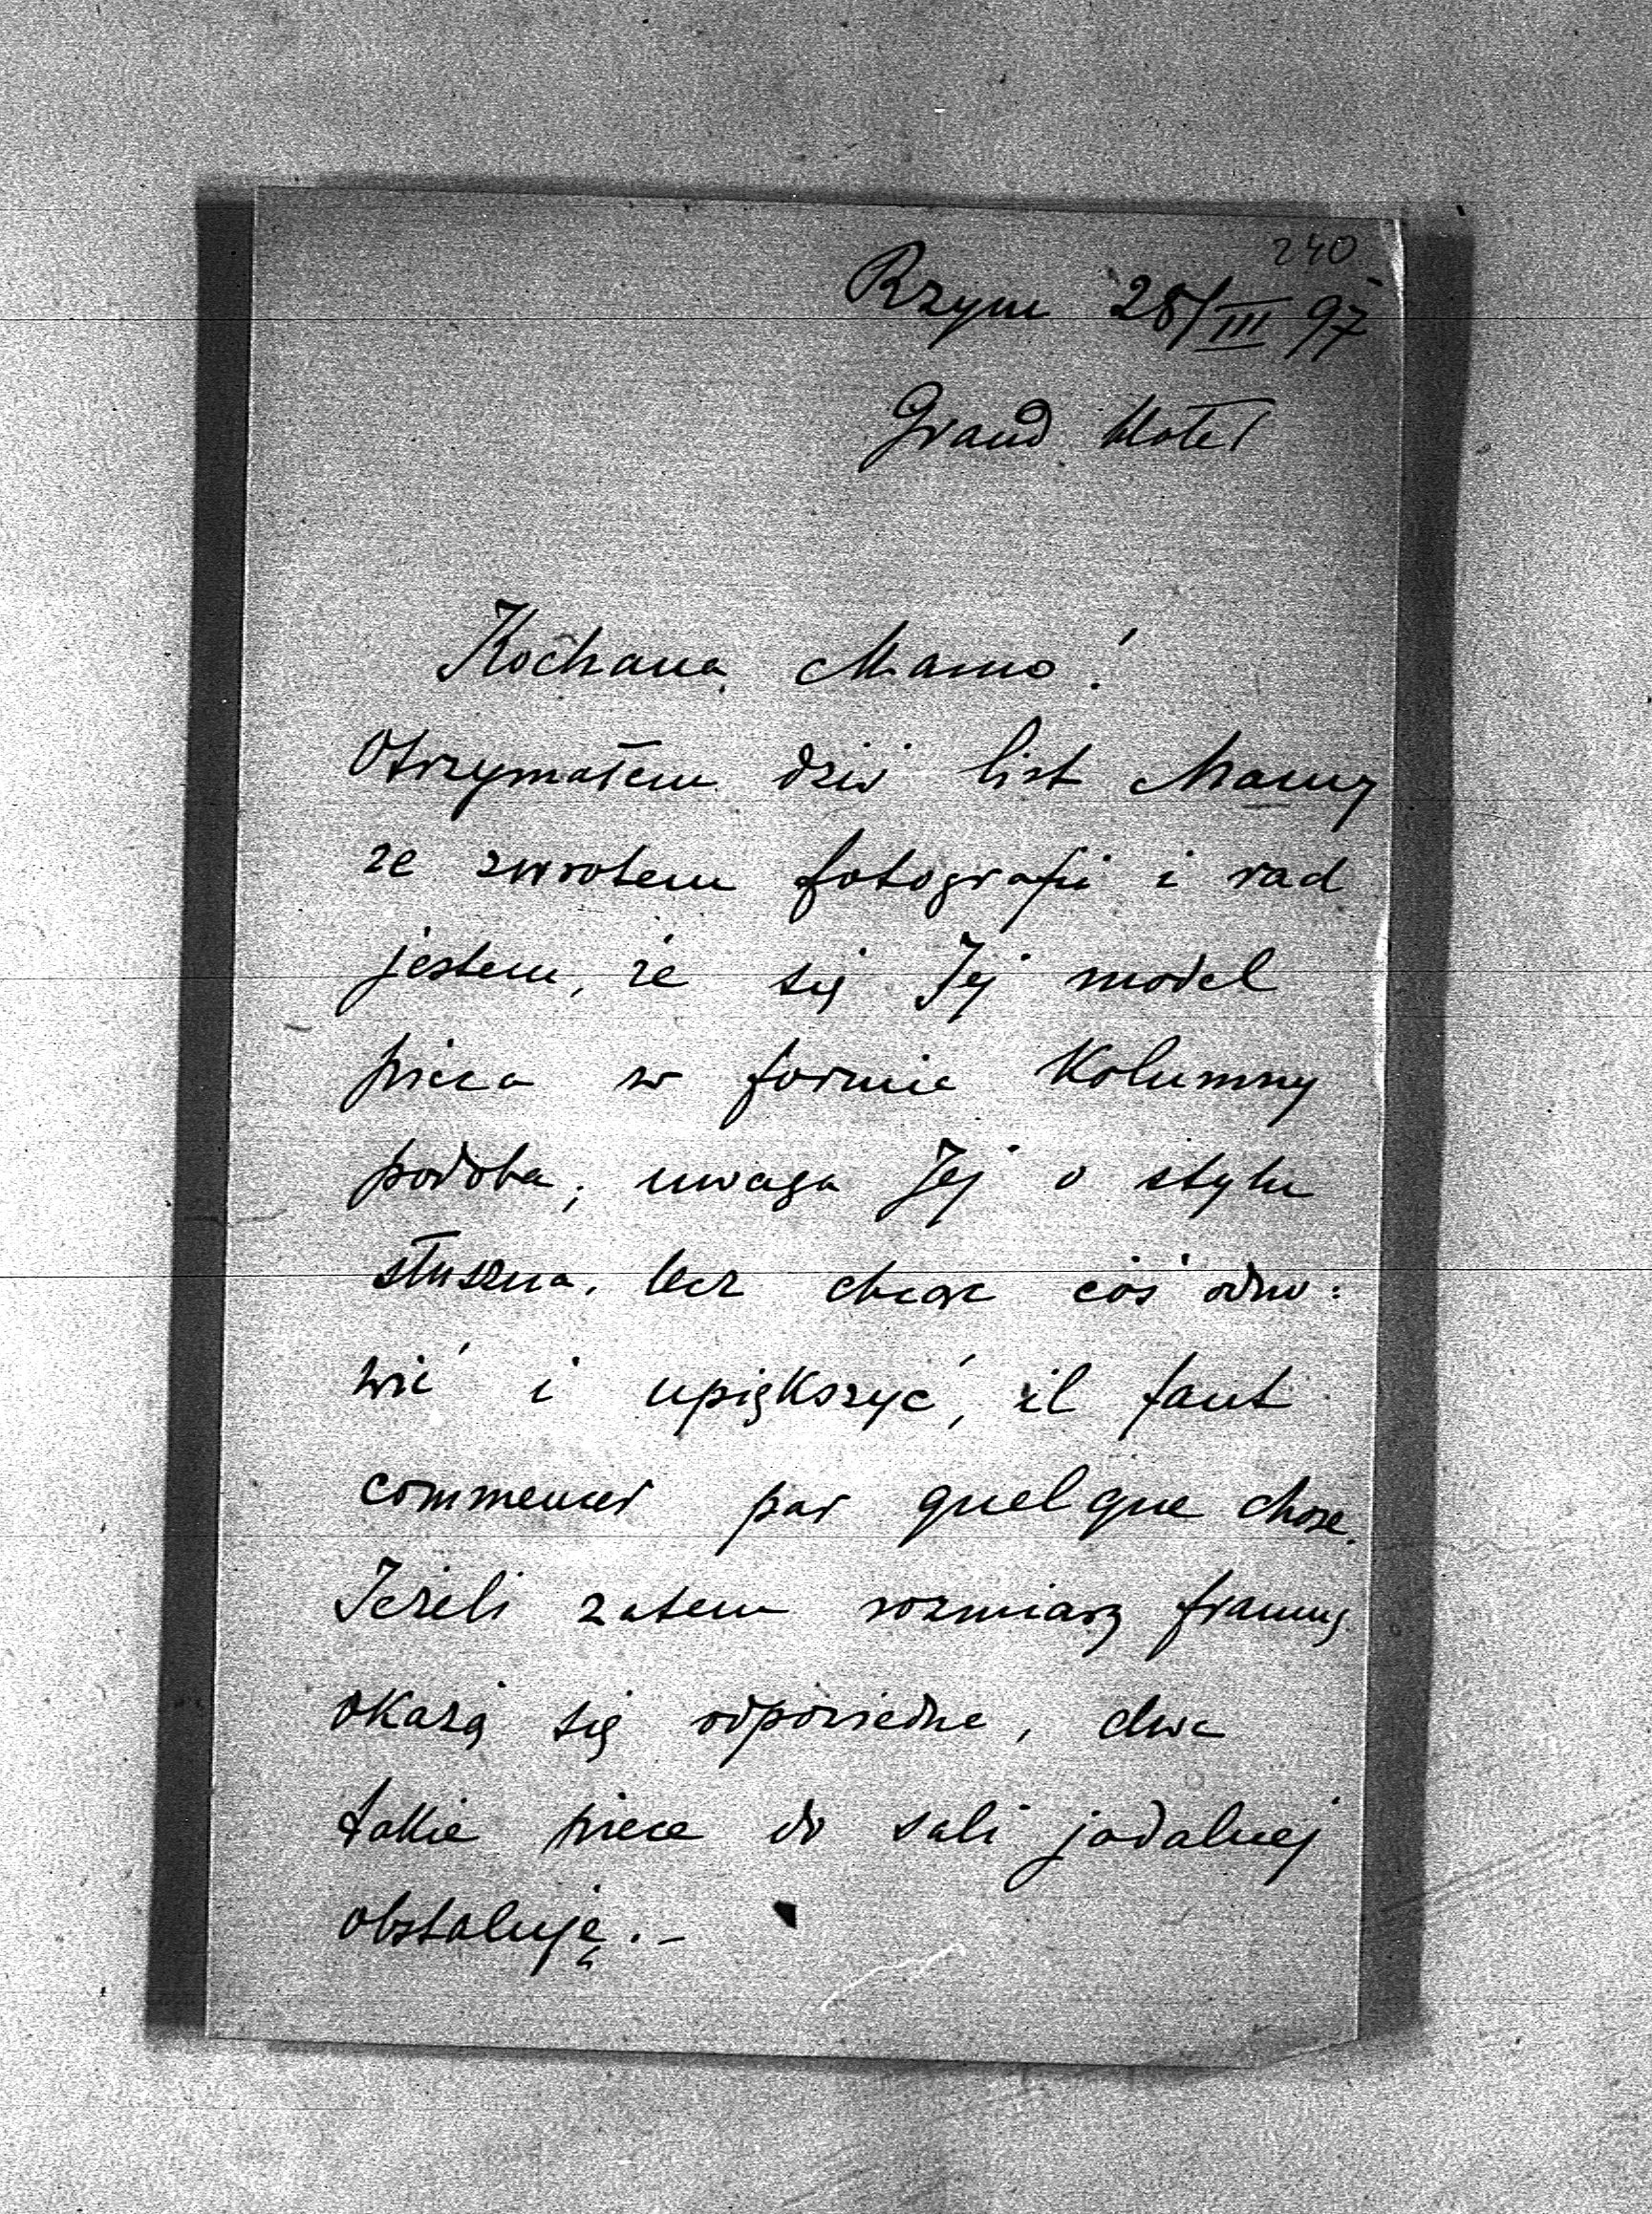 240
Rzym 28/III 97
Grand Hotel
Kochana Mamo!
Otrzymałem dziś list Mamy
ze zwrotem fotografii i rad
jestem, że się Jej model
pieca w formie Kolumny
podoba; uwaga Jej o stylu
słuszna, lecz chcąc coś odno:
wić i upiększyć, il faut
commencer par quelque chose.
Jeżeli zatem rozmiary framug
okażą się odpowiedne, dwa
takie piece do sali jadalnej
obstaluję.–